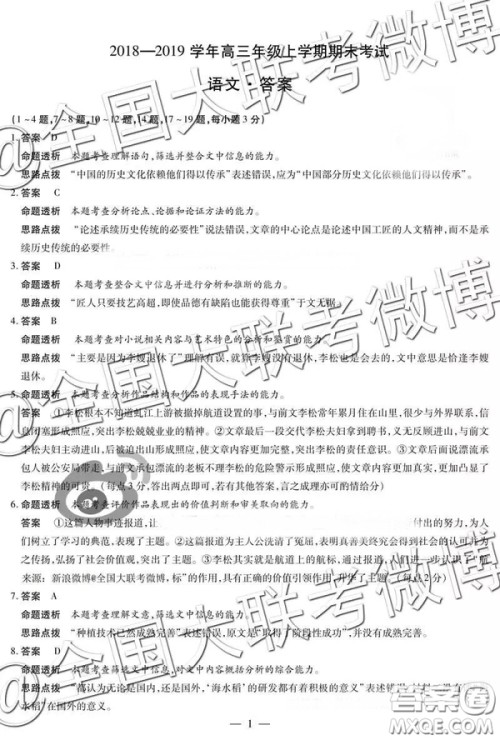 2018—2019 学年高三年级上学期期末考试
语文·答案
(1~4题,7~8题,10~12题,14题,17~19题,每小题3分)
1. 答案 D
命题透析 本题考查理解语句,筛选并整合文中信息的能力。
思路点拨 “中国的历史文化依赖他们得以传承”表述错误,应为“中国部分历史文化依赖他们得以传承”。
2. 答案 C
命题透析 本题考查分析论点、论据和论证方法的能力。
思路点拨 “论述承续历史传统的必要性”说法错误,文章的中心论点是论述中国工匠的人文精神,而不是承
续历史传统的必要性。
3. 答案 D
命题透析 本题考查整合文中信息并进行分析和推断的能力。
思路点拨 “匠人只要技艺高超,即使品德有缺陷也能得到尊重”于文无据。
4. 答案 B
命题透析 本题考查对小说相关内容与艺术特色的分析和鉴赏的能力。
思路点拨 “主要是因为李嫂退休了”理解有误,就算李嫂没有退休,李松也是会去的,文中意思是恰逢李嫂
退休。
5. 命题透析 本题考查分析作品结构和作品的表现手法的能力。
答案 ①李松根本不知道虬江上游被撤掉航道设置的事,与前文李松常年累月住在山里,很少与外界联系,信
息闭塞形成照应,突出李松兢兢业业的精神。②文章最后一段交代李松夫妇拿到聘书,又无反顾进山,与前文李
松夫妇主动进山,后被迫出山形成照应,前后形成对比,突出李松的责任意识。③李松后面深切理解漂流承
包人被公安局带走,与前文承包漂流的老板不理李松的危险警示形成照应,突出李松重情重义,不计前嫌的
精神的可贵。(每点3分,答出两点即可。如有其他答案,言之成理亦可酌情给分)
6. 命题透析 本题考查评价作品表现出的价值判断和审美取向的能力。
答案 ①这篇人物事迹报道,让 付出的努力,为人
们树立了学习的典范,表现了主题。②李松为社会奉献,终会得到社会的认可并为
之传诵,弘扬了社会价值观,突出了主题。③李松其实就是航道上的航标,这篇报道,
来源:新浪微博@全国大联考微博,标”的作用,具有正确的价值引导作用,升华了主题。(每点2分)
7. 答案 A
命题透析 本题考查理解文意,筛选文中信息的能力。
思路点拨 “种植技术已然成熟完善”表述错误,原文是“取得了阶段性成功”,并非成熟完善。
8. 答案
命题透析 本题考查筛选文中信息,对文中内容概括分析的综合能力。
思路点拨 “都认为无论是国内、还是国外,‘海水稻’的研发都有着积极的意义”表述错误,
水稻”在国外的意义。
— 1 —
@全国大联考微博
@全国大联考微博
@全国大联考微博
答案圈
MXQE.COM